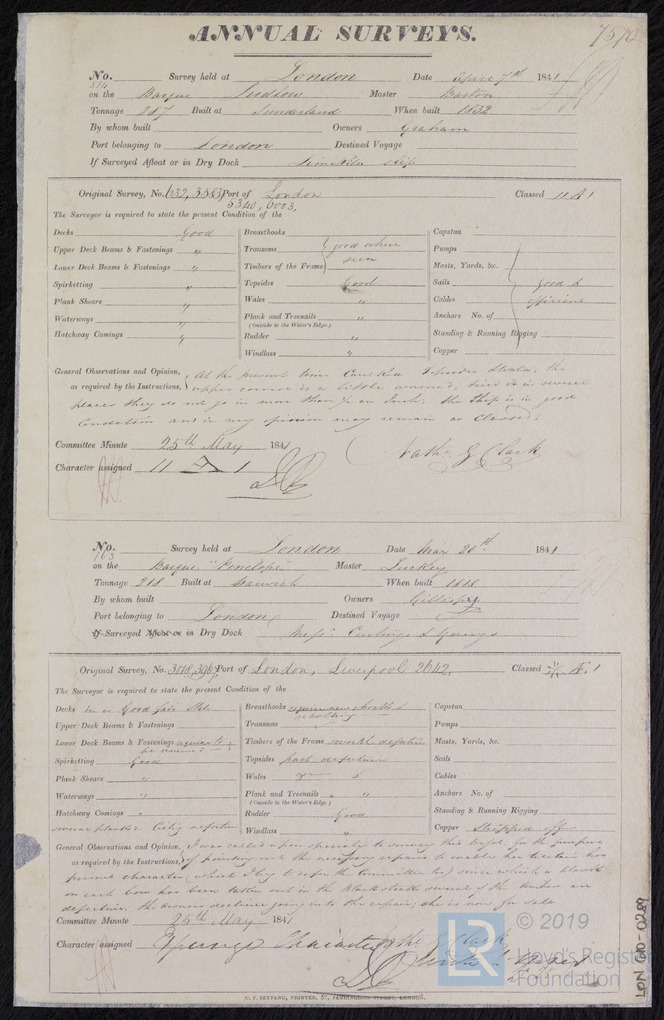 ANNUAL SURVEYS.
7570
No. 514 Survey held at London Date April 7th 1841
on the Barque Ludlow Master Barton
Tonnage 287 Built at Sunderland When built 1832
By whom built Owners Graham
Port belonging to London Destined Voyage
If Surveyed Afloat or in Dry Dock Limekiln
Original Survey, No. Port of London Classed 11 A 1
5340, 6003,
The Surveyor is required to state the present Condition of the,
Decks Good
Upper Deck Beams & Fastenings "
Lower Deck Beams & Fastenings "
Spirketting "
Plank Shears "
Waterways "
Hatchway Comings "
Breasthooks
Transoms
Timbers of the Frame
Good where seen
Topsides Good
Wales "
Plank and Treenails "
(Outside to the Water's Edge.)
Rudder "
Windlass "
Capstan
Pumps
Masts, Yards, &c.
Sails
Cables
Anchors No. of
Standing & Running Rigging
Copper
Good & efficient
General Observations and Opinion, At the present time Caulked Topsides, the
as required by the Instructions, upper course is a little, tried it in several
places they do not go in more than an Inch: the Ship is in good
Condition and in my opinion may remain as Classed:
Committee Minute 25th May 1841
Character assigned 11 A 1
Nathl. G Clark
No. 163 Survey held at London Date Mar 20th 1841
on the Barque "Penelope" Master
Tonnage 218 Built at Harwich When built 1818
By whom built Owners Gillespy
Port belonging to London Destined Voyage
If Surveyed Afloat or in Dry Dock Messrs Curlings & Youngs
Original Survey, No. Port of London, Liverpool 2642, Classed
The Surveyor is required to state the present Condition of the
Decks in a Good
Upper Deck Beams & Fastenings
Lower Deck Beams & Fastenings
Spirketting Good
Plank Shears "
Waterways "
Hatchway Comings "
several planks Ceiling defective
Breasthooks
Transoms
Timbers of the Frame defective
Topsides part defective
Wales
Plank and Treenails "
(Outside to the Water's Edge.)
Rudder Good
Windlass "
Capstan
Pumps
Masts, Yards, &c.
Sails
Cables
Anchors No. of
Standing & Running Rigging
Copper Stripped off
General Observations and Opinion, I was called upon specially to survey this vessel for the purpose
as required by the Instructions, of pointing out the necessary repairs to enable her to retain her
present character, (which I beg to refer the Committee to) since which a plank
on each bow has been taken out in the Blackstrake several of the timbers are
defective. the owners decline going into the repairs; she is now for sale
Committee Minute 25th May 1841
Character assigned Expunge Character
Nathl. G Clark
C. F. SEYFANG, PRINTER, 57, FARRINGDON STREET, LONDON.
LON 610-0289
LR
© 2019
Lloyd's Register
Foundation